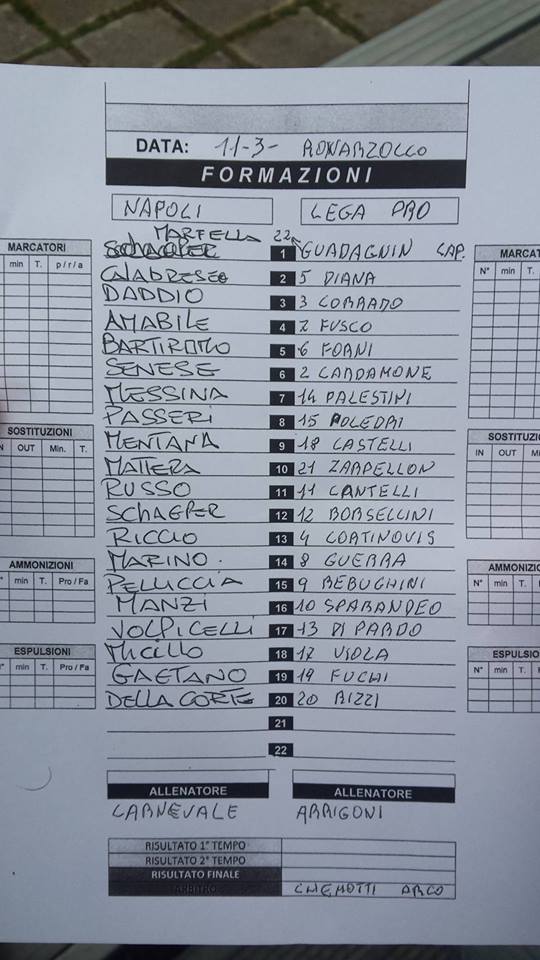 DATA: 11-3- RONZARZOLLO
FORMAZIONI
NAPOLI LEGA PRO
MARFELLA 22
MARCATORI SCHAEPER 1 GUADAGNIN CAP. MARCAT
min T. p/r/a CALABRESE 2 5 DIANA N° min T.
DADDIO 3 3 CORRADO
AMABILE 4 7 FUSCO
BARTIROMO 5 6 FORNI
SENESE 6 2 CARDAMONE
MESSINA 7 14 PALESTINI
PASSERI 8 15 POLEDRI
SOSTITUZIONI MENTANA 9 18 CASTELLI SOSTITUZIO
N OUT Min. T. MATTERA 10 21 ZARPELLON IN OUT M
RUSSO 11 11 CANTELLI
SCHAEPER 12 12 BORSELLINI
RICCIO 13 4 CORTINOVIS
AMMONIZIONI MARINO 14 8 GUERRA AMMONIZIO
min T. Pro / Fa PELUCCIA 15 9 REBUGHINI N° min T.
MANZI 16 10 SPARANDEO
VOLPICELLI 17 13 DI PARDO
ESPULSIONI MICILLO 18 17 VIOLA ESPULSIO
min T. Pro / Fa GAETANO 19 19 FUCHI N° min T.
DELLA CORTE 20 20 RIZZI
21
22
ALLENATORE ALLENATORE
CARNEVALE ARRIGONI
RISULTATO 1° TEMPO
RISULTATO 2° TEMPO
RISULTATO FINALE
ARBITRO CHEMOTTI ARCO